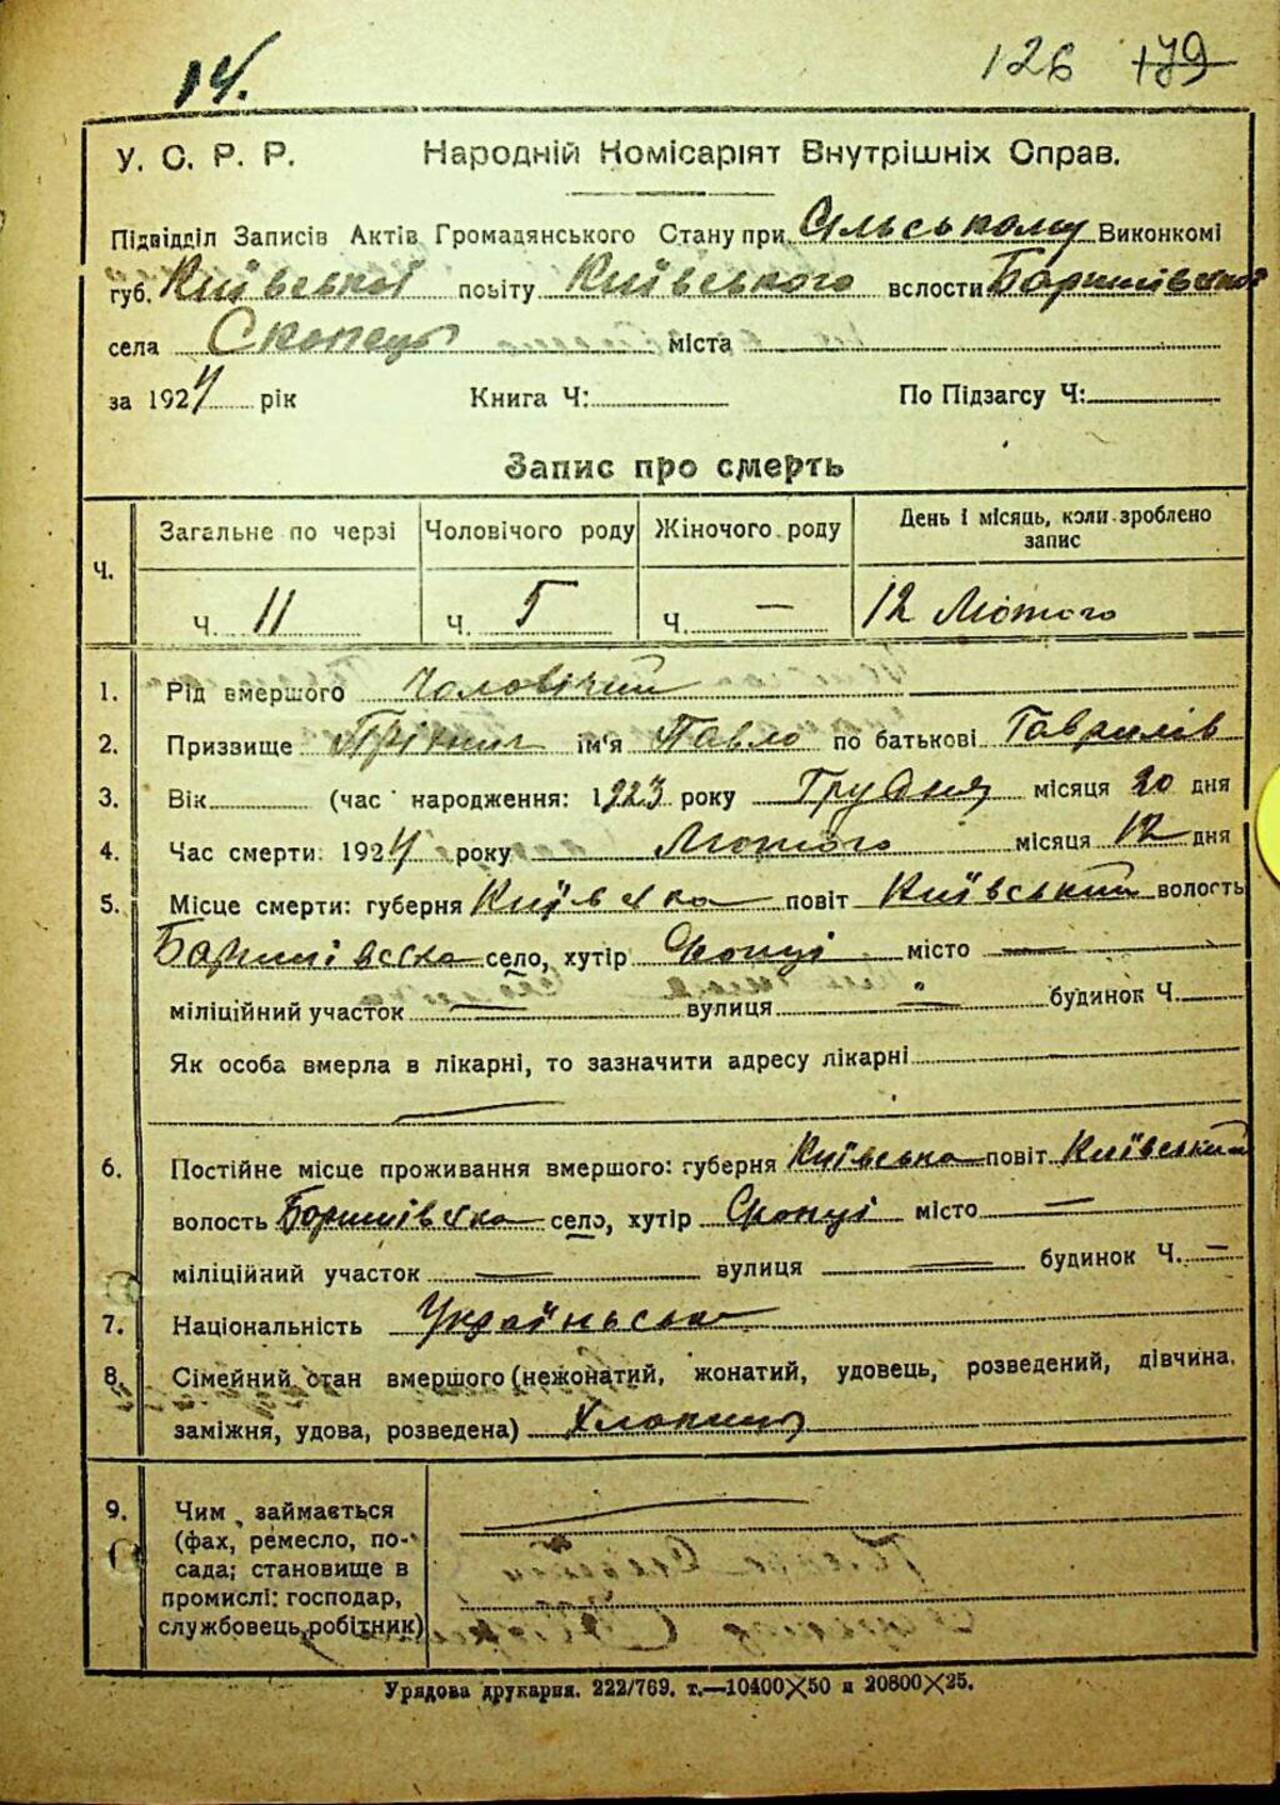 14.
126 179
У. С. Р. Р. Народній Комісаріят Внутрішніх Справ.
Підвідділ Записів Актів Громадянського Стану при Сільському Виконкомі
губ. Київської повіту Київського волости Баришівської
села Скопец міста
за 1924 рік Книга Ч: По Підзагсу Ч:
Запис про смерть
Загальне по черзі Чоловічого роду Жіночого роду День і місяць, коли зроблено запис
Ч.
Ч. 11 Ч. 5 Ч. — 12 Лютого
1. Рід вмершого Чоловічий
2. Призвище ім'я Павло по батькові Гаврилів
3. Вік (час народження: 1923 року Грудня місяця 20 дня
4. Час смерти: 1924 року Лютого місяця 12 дня
5. Місце смерти: губерня Київська повіт Київський волость
Баришівська село, хутір Скопці місто —
міліційний участок — вулиця — будинок Ч.
Як особа вмерла в лікарні, то зазначити адресу лікарні
6. Постійне місце проживання вмершого: губерня Київська повіт Київський
волость Баришівська село, хутір Скопці місто —
міліційний участок — вулиця — будинок Ч. —
7. Національність Українська
8. Сімейний стан вмершого (нежонатий, жонатий, удовець, розведений, дівчина,
заміжня, удова, розведена) Хлопець
9. Чим займається
(фах, ремесло, по-
сада; становище в
промислі: господар,
службовець, робітник)
Урядова друкарня. 222/769. т.—10400×50 и 20800×25.